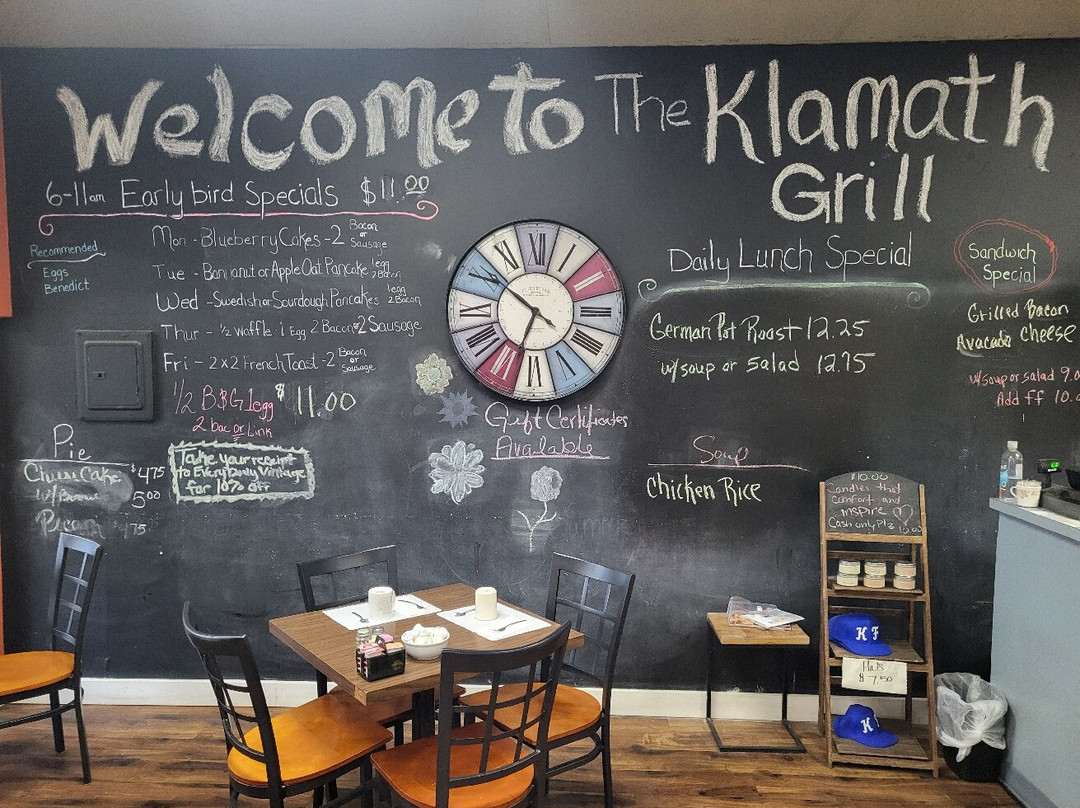 Welcome To The Klamath
Grill
6-11am Early bird Specials $11.00
Recommended
Eggs
Benedict
Mon - Blueberry Cakes - 2 Bacon or Sausage
Tue - Bananut or Apple Oat Pancake 1egg 2 Bacon
Wed - Swedish or Sourdough Pancakes 1egg 2 Bacon
Thur - 1/2 Waffle 1 Egg 2 Bacon or 2 Sausage
Fri - 2x2 French Toast - 2 Bacon or Sausage
1/2 B&G 1egg $11.00
2 bac or Link
Pie
Cheese Cake $4.75
5.00
Pecan 4.75
Take your receipt
to Every Daily Vintage
for 10% off
XII
I
II
III
IIII
V
VI
VII
VIII
IX
X
XI
Gift Certificates
Available
Daily Lunch Special
German Pot Roast 12.25
w/soup or salad 12.75
Soup
Chicken Rice
Sandwich
Special
Grilled Bacon
Avacado Cheese
w/soup or salad 9.
Add FF 10.
$10.00
Candles that
Comfort and
inspire
Cash only Plz 10.00
KF
Hats
$ 7.50
K